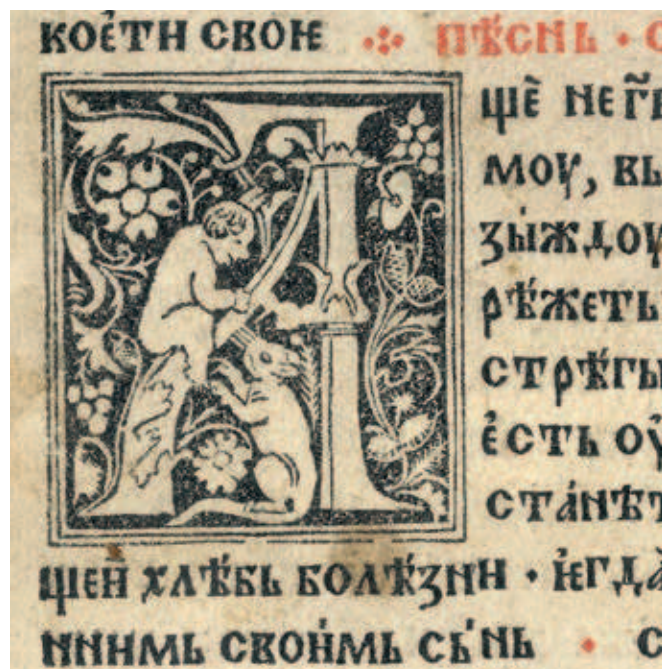 коѐти своѥ ⁘ пѣснь · с
А
щѐ не гⷭ҇
моу, вь
зы́ждоу
рѣжеть
стрѣгы
ѐсть оу
ста́нѣт
щеи хлѣбь болѣзни · ѥгда
ннимь свои́мь сь́нь · с